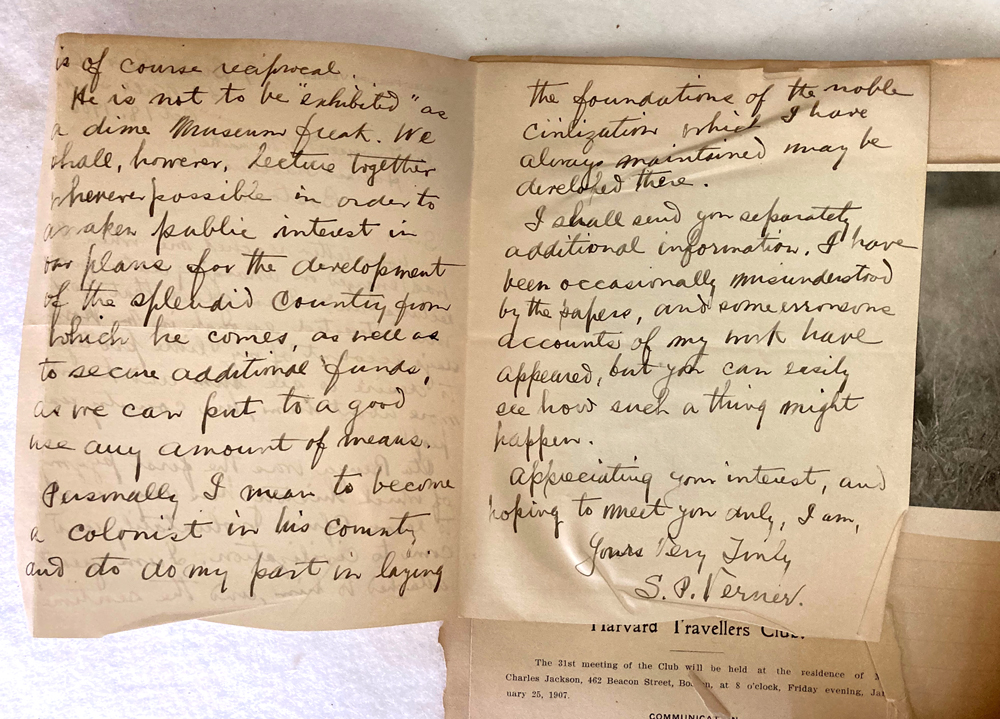 is of course reciprocal.
He is not to be "exhibited" as
a dime Museum freak. We
shall, however, lecture together
wherever possible in order to
awaken public interest in
our plans for the development
of the splendid Country from
which he comes, as well as
to secure additional funds,
as we can put to a good
use any amount of means.
Personally I mean to become
a colonist in his country
and do my part in laying
the foundations of the noble
civilization which I have
always maintained may be
developed there.
I shall send you separately
additional information. I have
been occasionally misunderstood
by the papers, and some erronsons
accounts of my work have
appeared, but you can easily
see how such a thing might
happen.
Appreciating your interest, and
hoping to meet you duly, I am,
Yours Very Truly
S. P. Verner.
Harvard Travellers Club.
The 31st meeting of the Club will be held at the residence of
Charles Jackson, 462 Beacon Street, Boston, at 8 o'clock, Friday evening, Jan
uary 25, 1907.